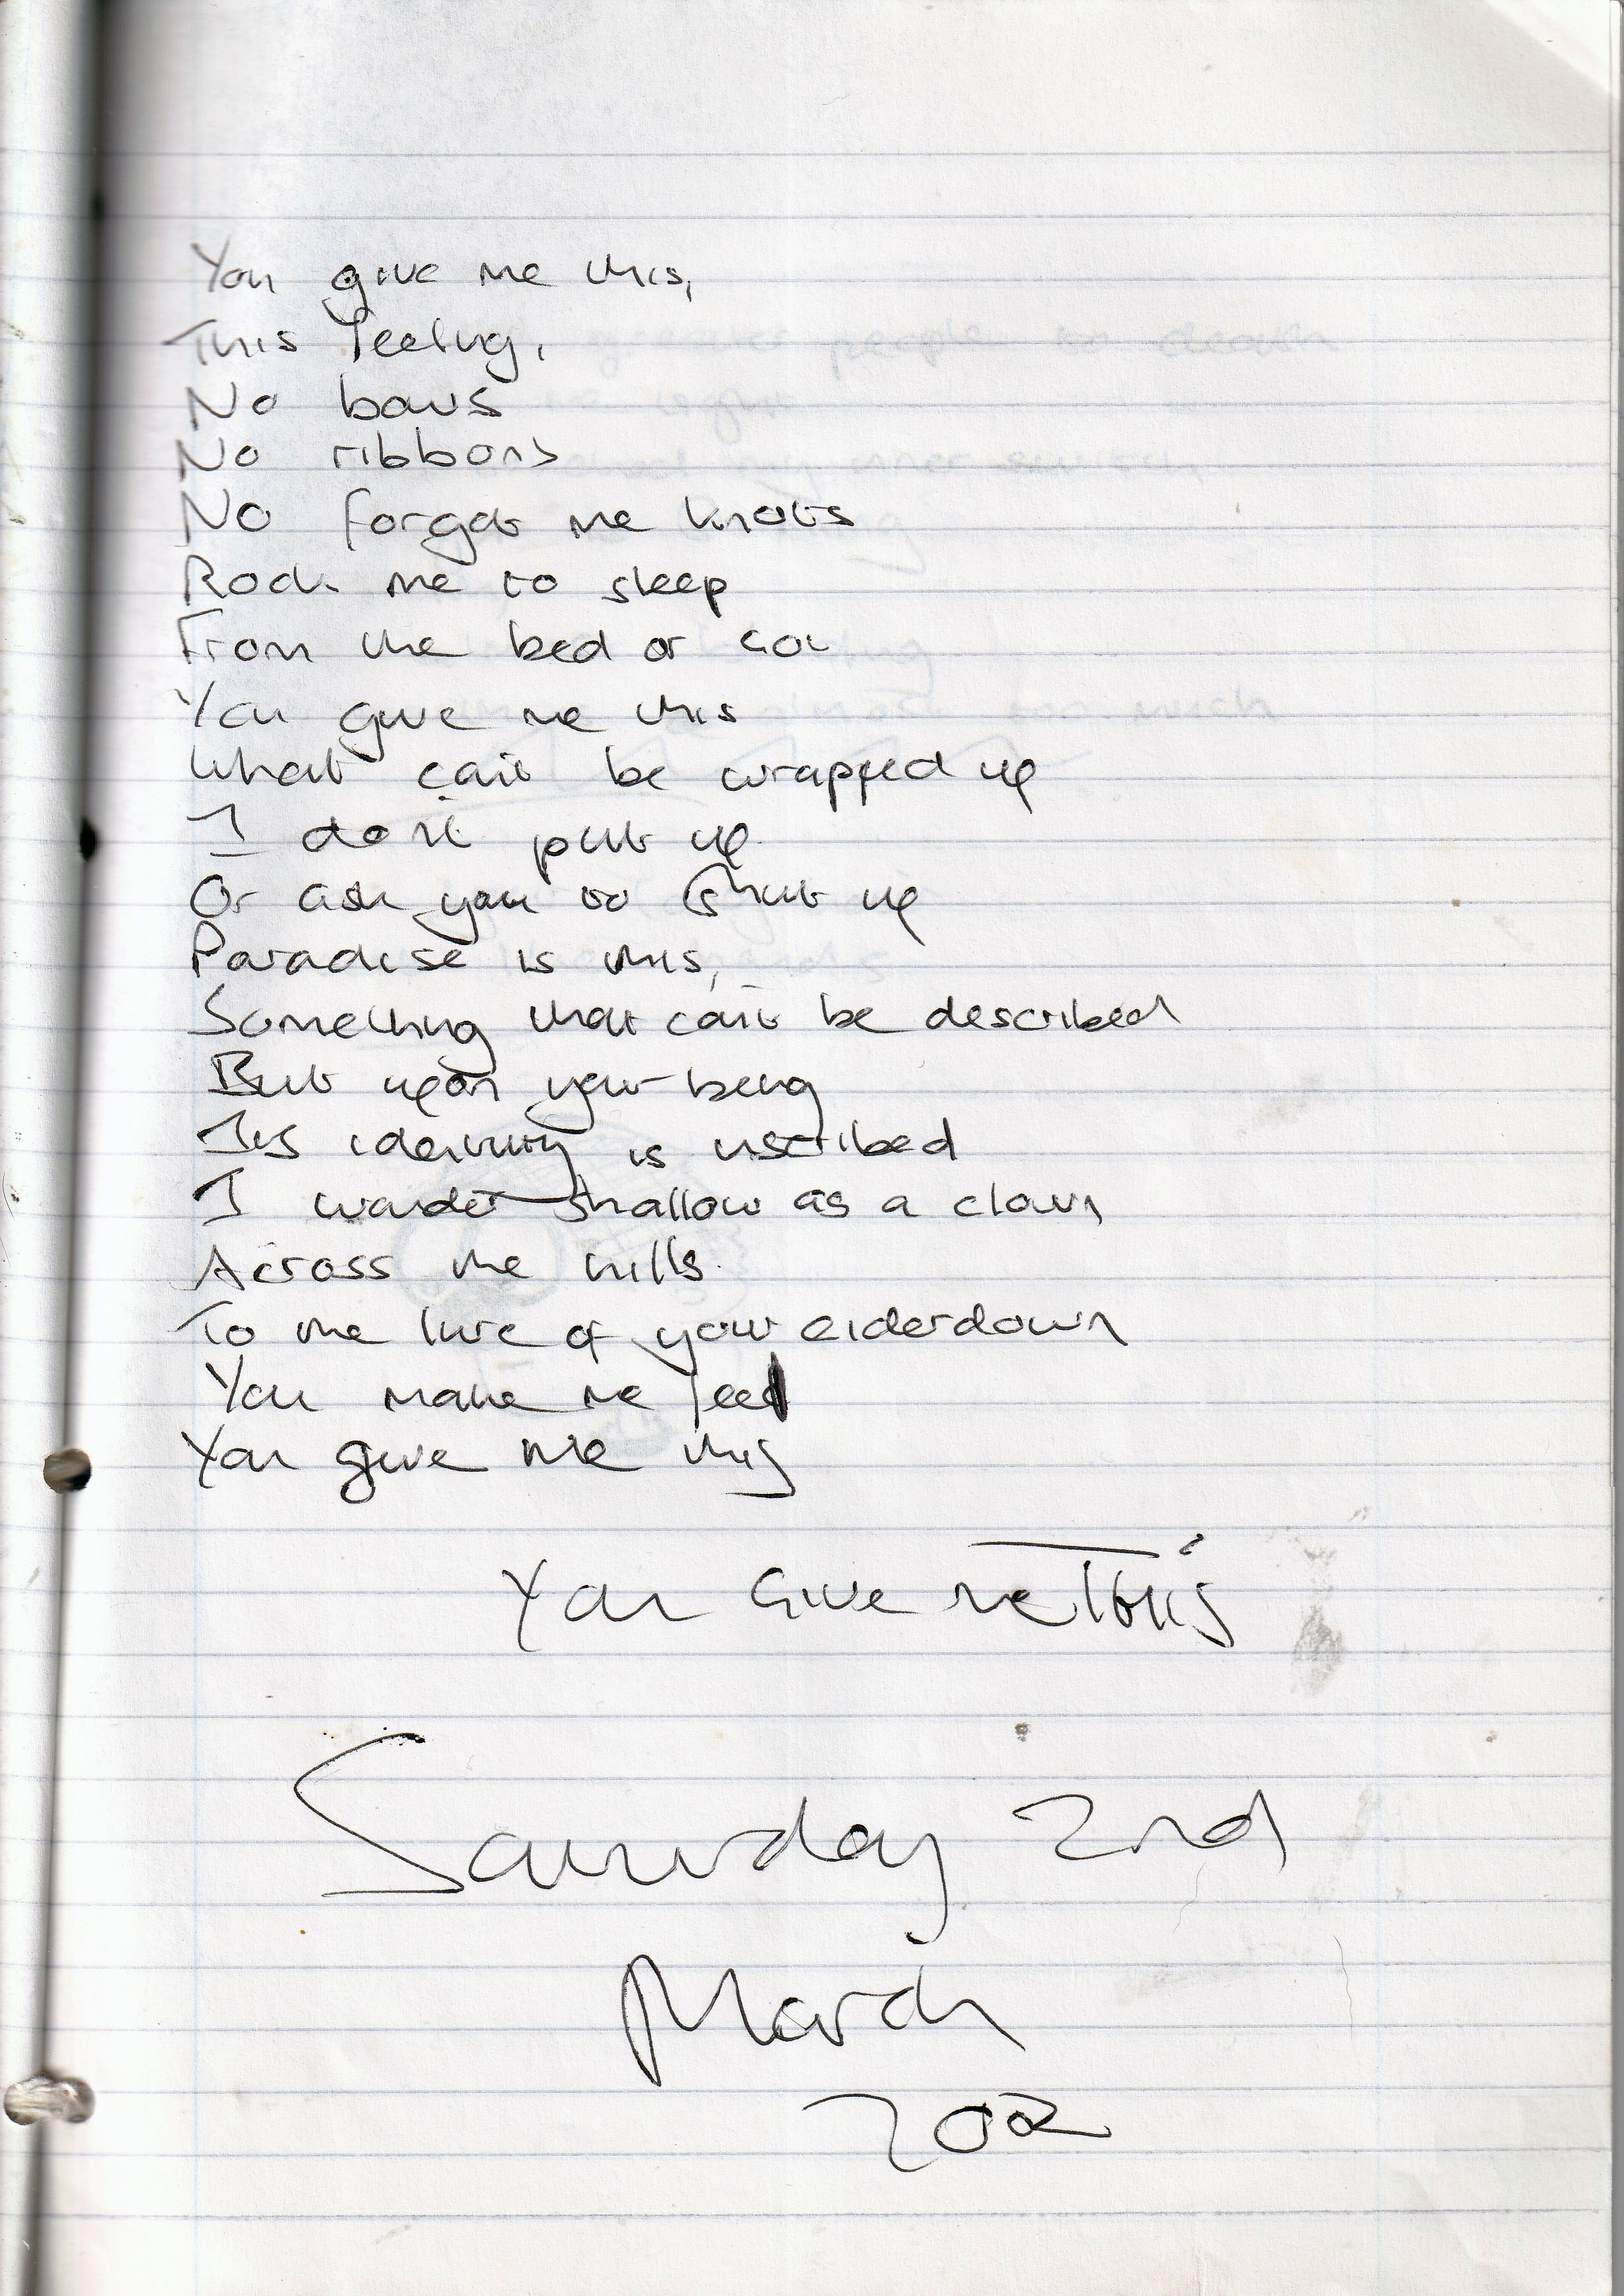 You give me this,
This feeling,
No bows
No ribbons
No forget me knots
Rock me to sleep
From the bed or cot
You give me this
What can't be wrapped up
I don't put up
Or ask you to shut up
Paradise is this,
Something that can't be described
But upon your being
Its identity is inscribed
I wander shallow as a clown
Across the hills
To the lure of your eiderdown
You make me feel
You give me this
You Give me This
Saturday 2nd
March
2002